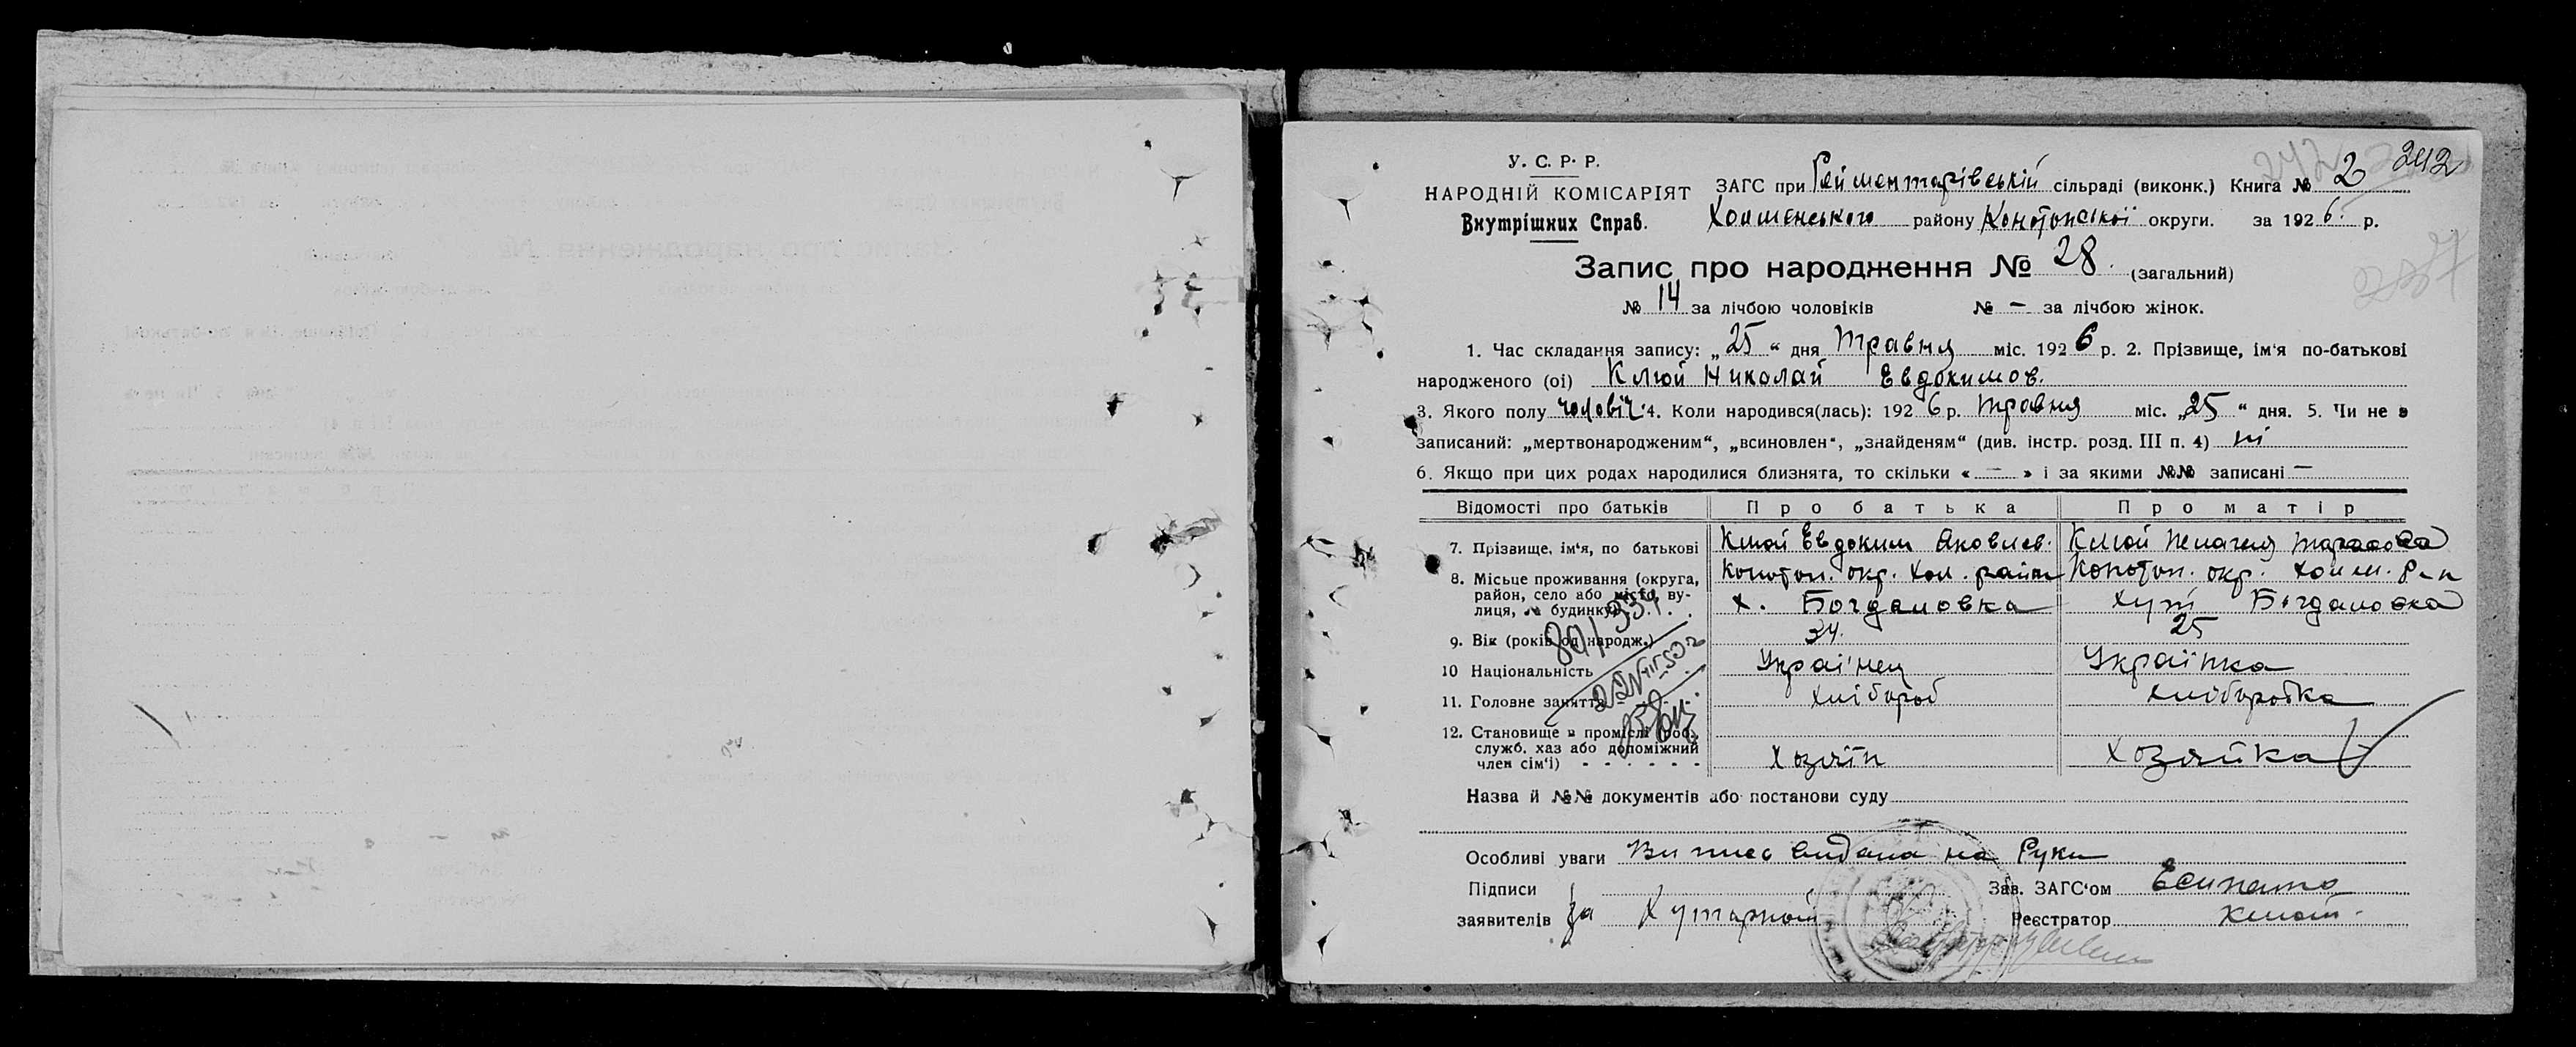 242
У. С. Р. Р.
НАРОДНІЙ КОМІСАРІЯТ
Внутрішних Справ.
ЗАГС при Рейментарівській сільраді (виконк.) Книга № 2
Холменського району Конотопської округи. за 1926 р.
Запис про народження № 28. (загальний)
№ 14 за лічбою чоловіків № – за лічбою жінок.
1. Час складання запису: „25“ дня Травня міс. 1926 р. 2. Прізвище, ім'я по-батькові
народженого (ої) Клюй Николай Евдокимов.
3. Якого полу чоловіч. 4. Коли народився(лась): 1926 р. Травня міс. „25“ дня. 5. Чи не є
записаний: „мертвонародженим“, „всиновлен“, „знайденям“ (див. інстр. розд. III п. 4) ні
6. Якщо при цих родах народилися близнята, то скільки « — » і за якими №№ записані —
Відомості про батьків Про батька Про матір
7. Прізвище, ім'я, по батькові Клюй Евдоким Яковлев. Клюй Пелагея Тарасова
8. Місьце проживання (округа, Конотоп. окр. Хол. район Конотоп. окр. Холм. р-н
район, село або місто, ву-
лиця, № будинку) х. Богдановка хут Богдановка
9. Вік (років од народж.) 34. 25
10 Національність Украінец Украінка
11. Головне заняття хлібороб хліборобка
12. Становище в промислі (роб.,
служб. хаз або допоміжний
член сім'ї) - - - - - - Хозяїн Хозяйка
Назва й №№ документів або постанови суду
Особливі уваги Випис видана на Руки
Підписи Зав. ЗАГС'ом
заявителів за Хутарной Реєстратор Клюй